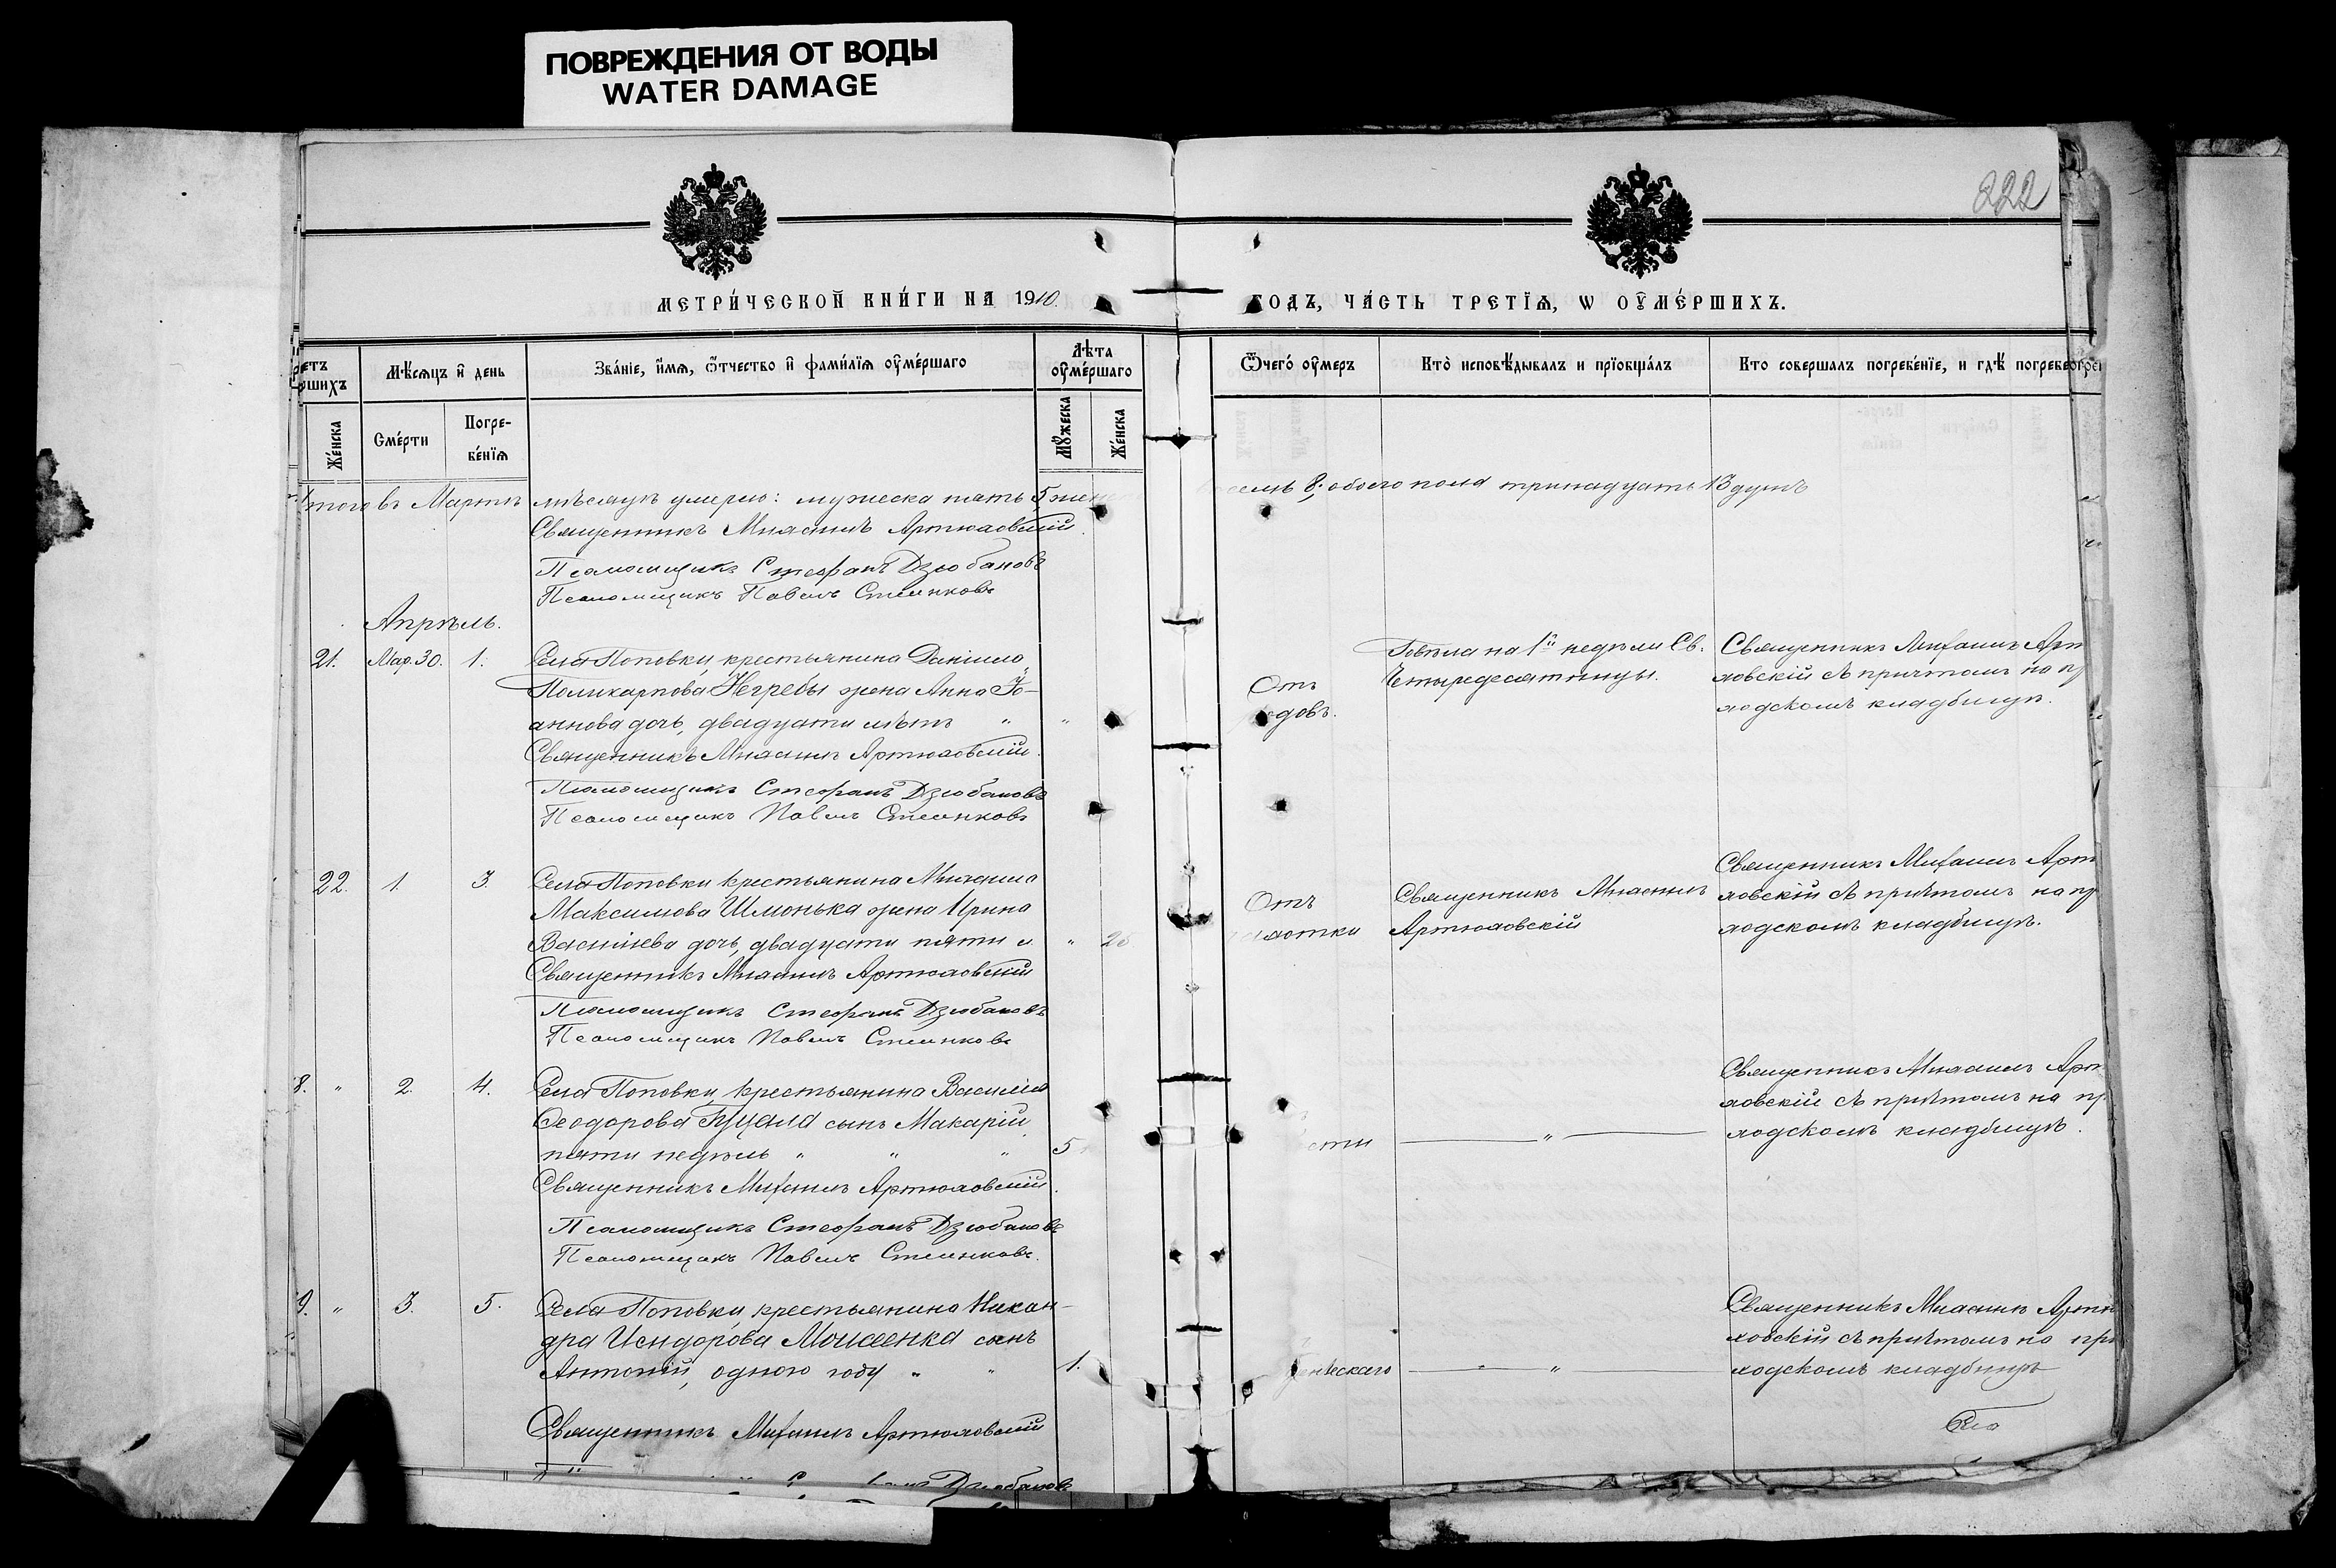 ПОВРЕЖДЕНИЯ ОТ ВОДЫ
WATER DAMAGE
222
МЕТРИ́ЧЕСКОЙ КНИ́ГИ НА 1910.
ГОДЪ, ЧА́СТЬ ТРЕТЇѦ, Ѡ ОУМЕ́РШИХЪ.
Мѣсяцъ и день
Зва́нїе, и́мѧ, ѻ҆́тчество и фами́лїѧ оуме́ршаго
Лѣта
оуме́ршаго
Ѿчегѡ́ оу́меръ
Кто̀ исповѣ́дывалъ и прїобща́лъ
Кто совершалъ погребе́нїе, и гдѣ̀
Же́нска
Сме́рти
Погре-
бе́нїѧ
Мꙋ́жеска
Же́нска
того въ Мартѣ мѣсяцѣ умерло: мужеска пять 5, жен
8; обоего пола тринадцать 13 душъ
Священникъ Михаилъ Артюховскій.
Псаломщикъ Стефанъ Дзюбановъ
Псаломщикъ Павелъ
Апрѣль.
21. Мар. 30. 1. Села Поповки, крестьянина Даніила
Поликарпова Негребы жена Анна Іо-
аннова дочь, двадцати лѣтъ " "
Священникъ Михаилъ Артюховскій.
Псаломщикъ Стефанъ Дзюбановъ
Псаломщикъ Павелъ
Отъ
довъ.
Говѣла на 1й недѣли Св.
Четыредесятницы.
Священникъ Михаилъ Арт
ховскій съ причтомъ на п
ходскомъ кладбищѣ.
22. 1. 3. Села Поповки крестьянина Михаила
Максимова Шмонька жена Ирина
Василіева дочь, двадцати пяти л. " 25
Священникъ Михаилъ Артюховскій
Псаломщикъ Стефанъ Дзюбановъ
Псаломщикъ Павелъ
Отъ
чахотки
Священникъ Михаилъ
Артюховскій
Священникъ Михаилъ Арт
ховскій съ причтомъ на пр
ходскомъ кладбищѣ.
8. " 2. 4. Села Поповки, крестьянина Василія
Ѳеодорова Куцала сынъ Макарій
пяти недѣль " " " 5
Священникъ Михаилъ Артюховскій.
Псаломщикъ Стефанъ Дзюбановъ
Псаломщикъ Павелъ
сти
"
Священникъ Михаилъ Арт
ховскій съ причтомъ на пр
ходскомъ кладбищѣ.
9. " 3. 5. Села Поповки, крестьянина Никан-
дра Исидорова Моисеенка сынъ
Антоній, одного году " " 1.
Священникъ Михаилъ Артюховскій
Дзюбановъ
"
Священникъ Михаилъ Артю
ховскій съ причтомъ на при
ходскомъ кладбищѣ